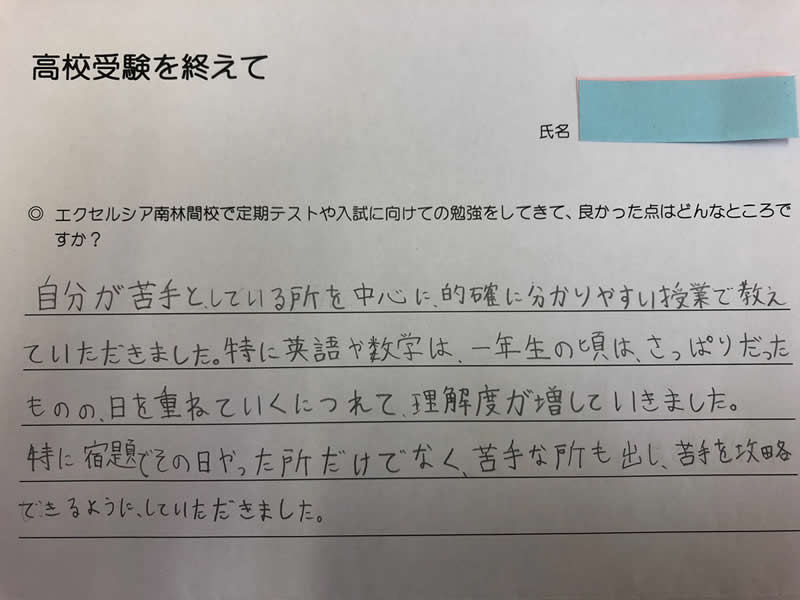 高校受験を終えて
氏名
◎ エクセルシア南林間校で定期テストや入試に向けての勉強をしてきて、良かった点はどんなところで
すか？
自分が苦手としている所を中心に、的確に分かりやすい授業で教え
ていただきました。特に英語や数学は、一年生の頃は、さっぱりだった
ものの、日を重ねていくにつれて、理解度が増していきました。
特に宿題でその日やった所だけでなく、苦手な所も出し、苦手を攻略
できるように、していただきました。